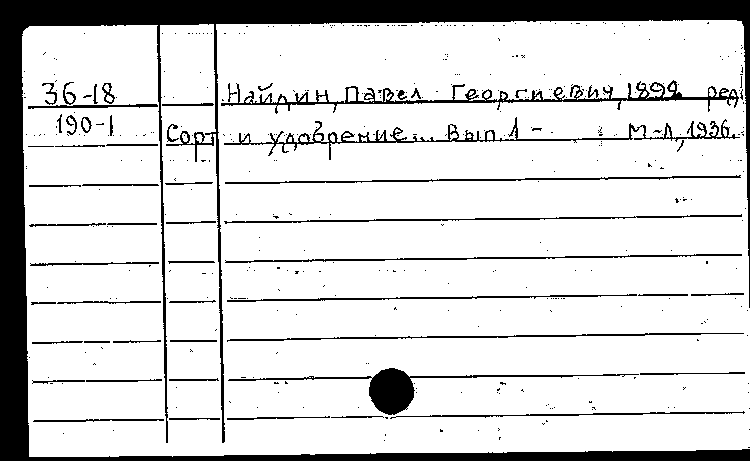 36-18 Найдин, Павел Георгиевич, 1892 ред.
190-1 Сорт и удобрение... Вып. 1 - М-Л, 1936.